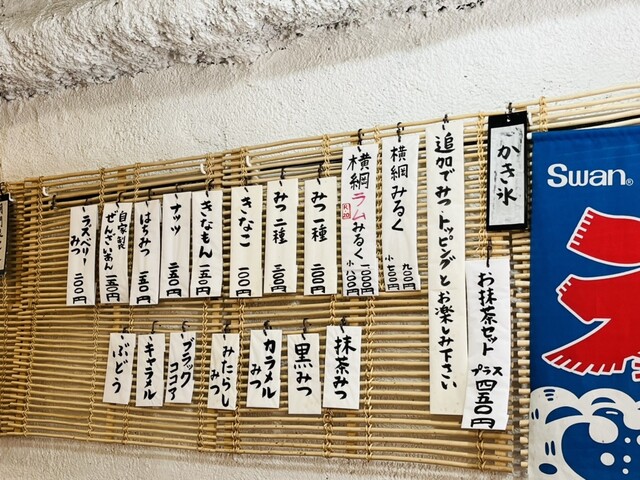 かき氷
お抹茶セット
プラス四五〇円
追加でみつ・トッピングとお楽しみ下さい
横綱みるく
九〇〇円
小七〇〇円
横綱ラムみるく
一〇〇〇円
小八〇〇円
みつ一種
二〇〇円
みつ二種
三〇〇円
きなこ
一〇〇円
きなもん
一五〇円
ナッツ
二五〇円
はちみつ
一五〇円
自家製
ぜんざいあん
一五〇円
ラズベリー
みつ
二〇〇円
抹茶みつ
黒みつ
カラメル
みつ
みたらし
みつ
ブラック
ココア
キャラメル
ぶどう
Swan